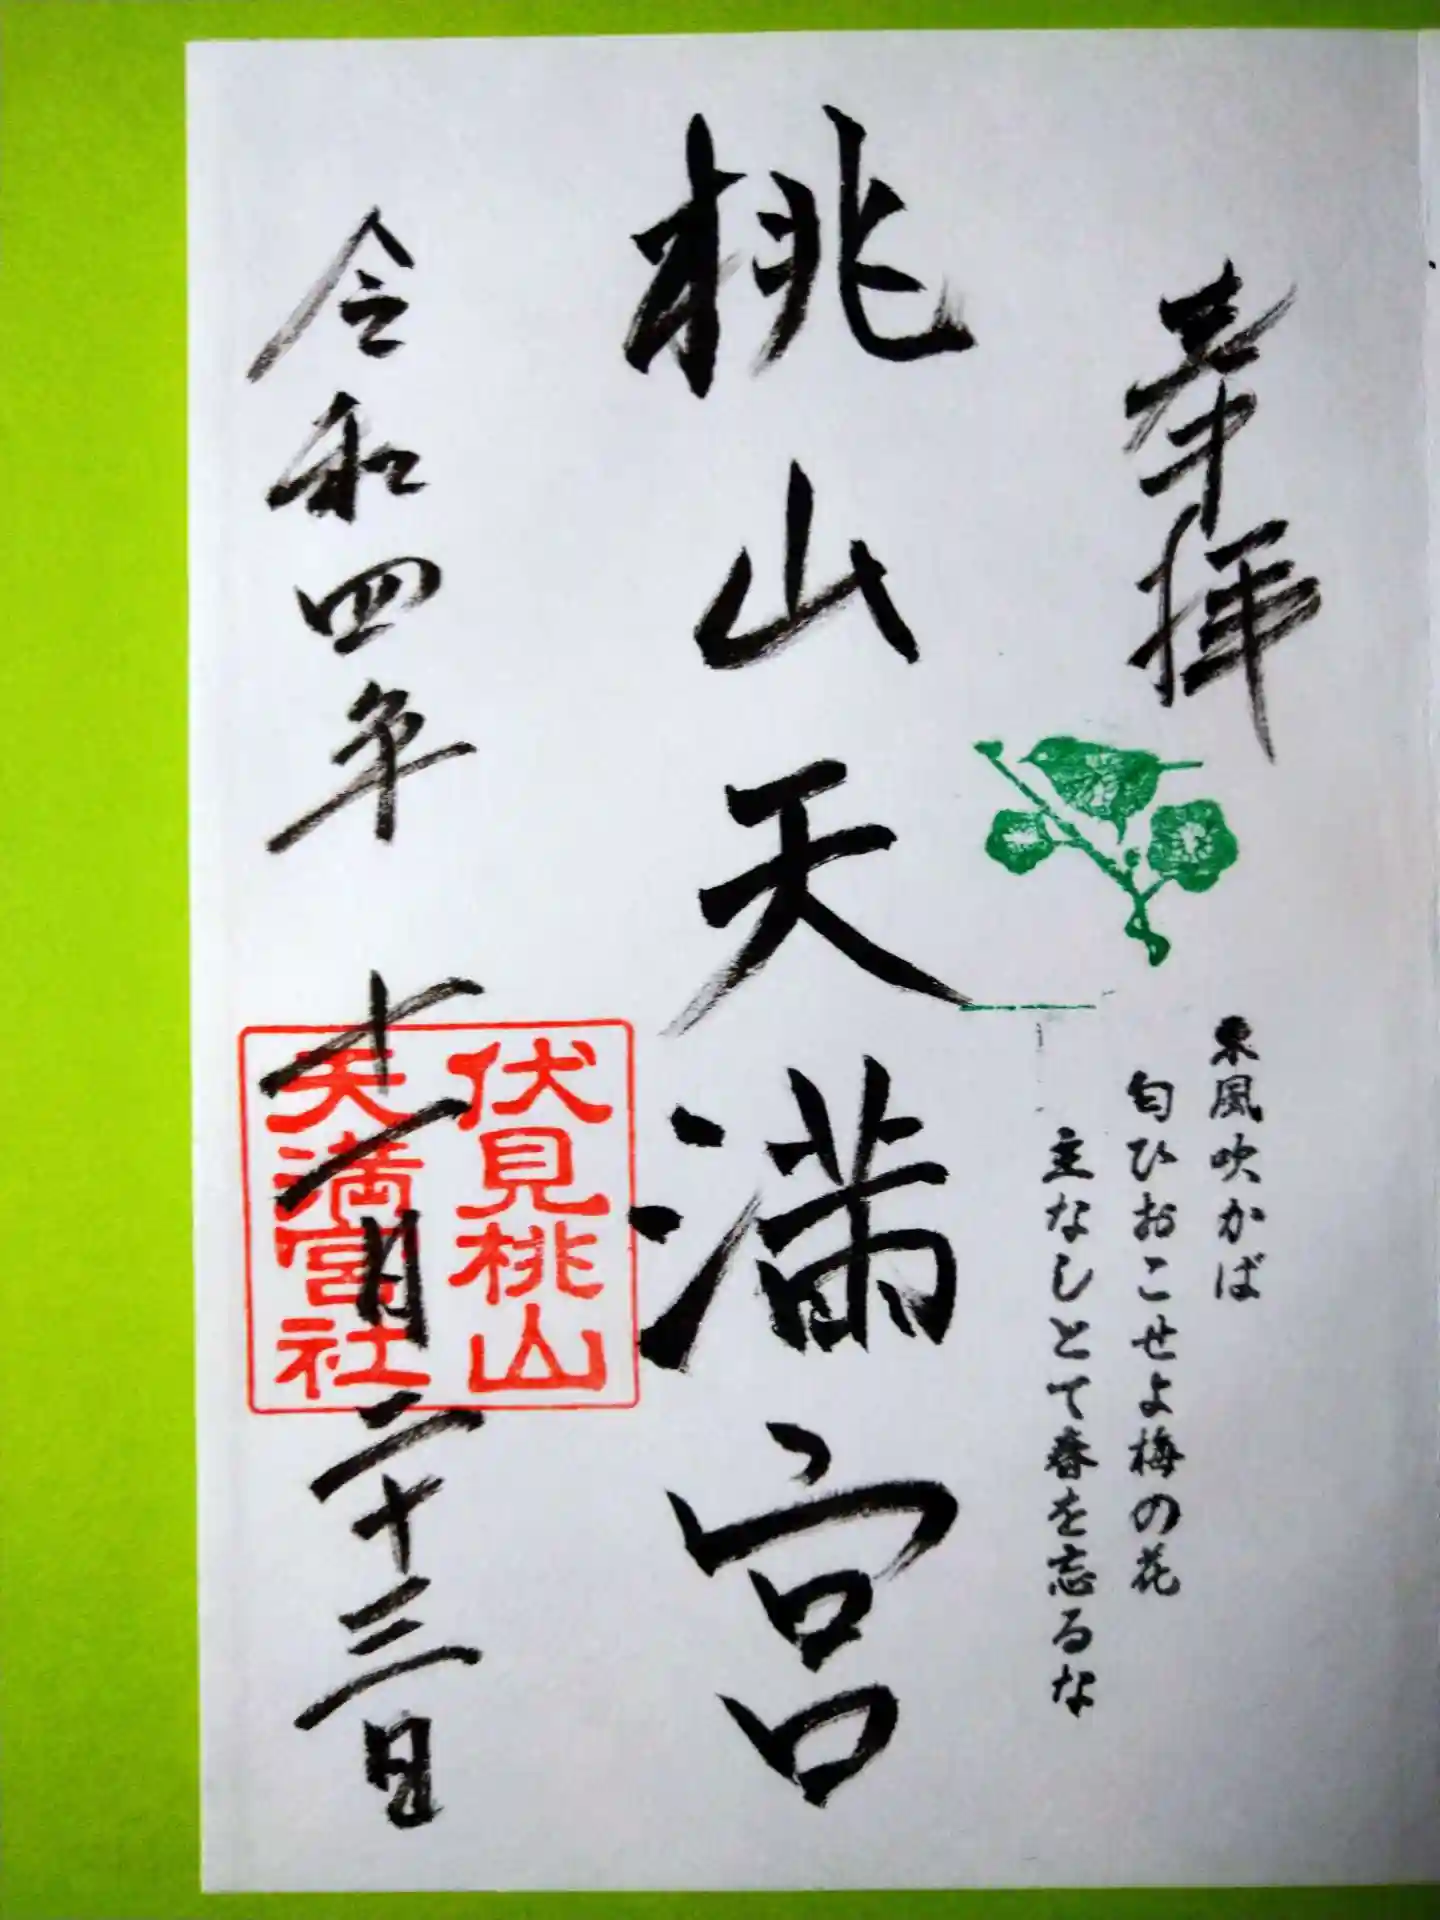 奉拝
東風吹かば
匂ひおこせよ梅の花
主なしとて春を忘るな
桃山天満宮
伏見桃山
天満宮社
令和四年 十一月二十三日